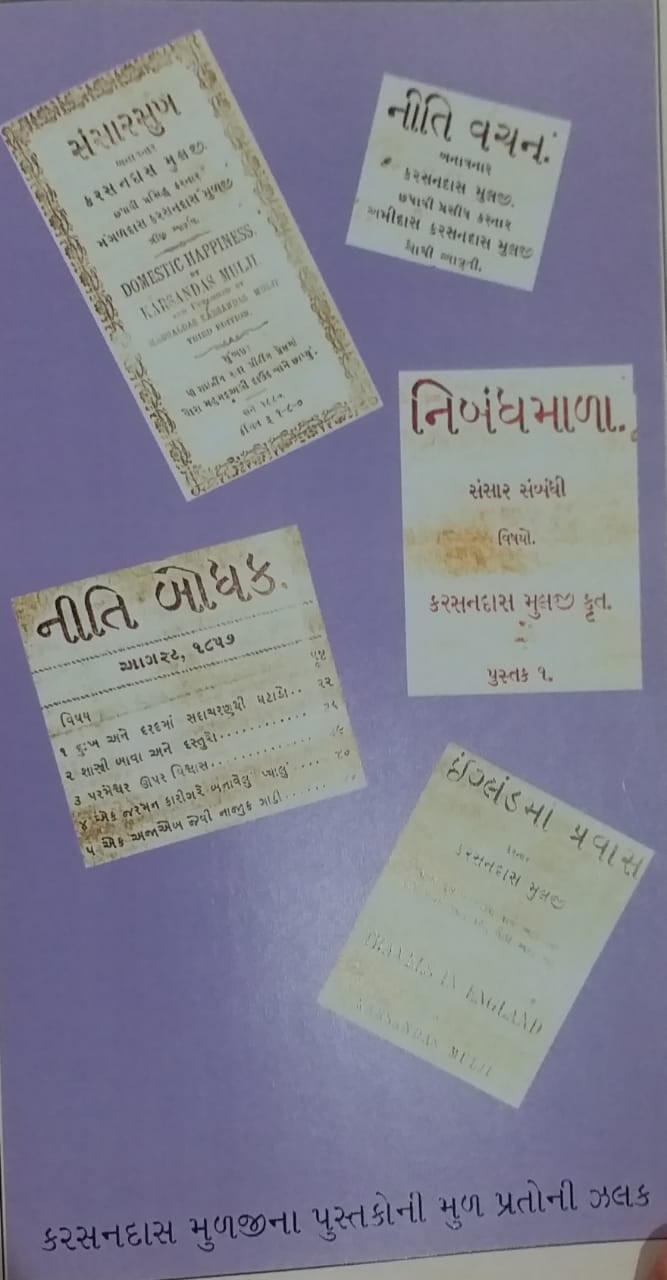 સંસારસુખ
બનાવનાર
કરસનદાસ મુલજી.
છપાવી પ્રસિદ્ધ કરનાર
મંગળદાસ કરસનદાસ મુળજી
DOMESTIC HAPPINESS.
BY
KARSANDAS MULJI.
AND PUBLISHED BY
MANGALDAS KARSANDAS MULJI
THIRD EDITION.
મુંબઇ:
સને ૧૮૮૦
કીંમત રૂ ૧-૮-૦
નીતિ વચન.
બનાવનાર
કરસનદાસ મુલજી.
છપાવી પ્રસીધ કરનાર
અમીદાસ કરસનદાસ મુલજી
ચોથી આવૃતી.
નિબંધમાળા.
સંસાર સંબંધી
વિષયો.
કરસનદાસ મુલજી કૃત.
પુસ્તક ૧.
નીતિ બોધક.
આગસ્ટ, ૧૮૫૭
વિષય પૃષ્ઠ
૧ દુઃખ અને દરદમાં સદાચરણથી ઘટાડો.. ૨૨
૨ શાસ્ત્રી બાવા અને દસ્તુરો...........
૩ પરમેશ્વર ઊપર વિશ્વાસ............
૪ એક જરમન કારીગરે બનાવેલું પ્યાલું ....
૫ એક અજાએબ જેવી નાજુક ગાડી......
ઈંગ્લંડમાં પ્રવાસ
કરનાર
કરસનદાસ મુલજી
TRAVELS IN ENGLAND
KARSANDAS MULJI
કરસનદાસ મુળજીના પુસ્તકોની મુળ પ્રતોની ઝલક